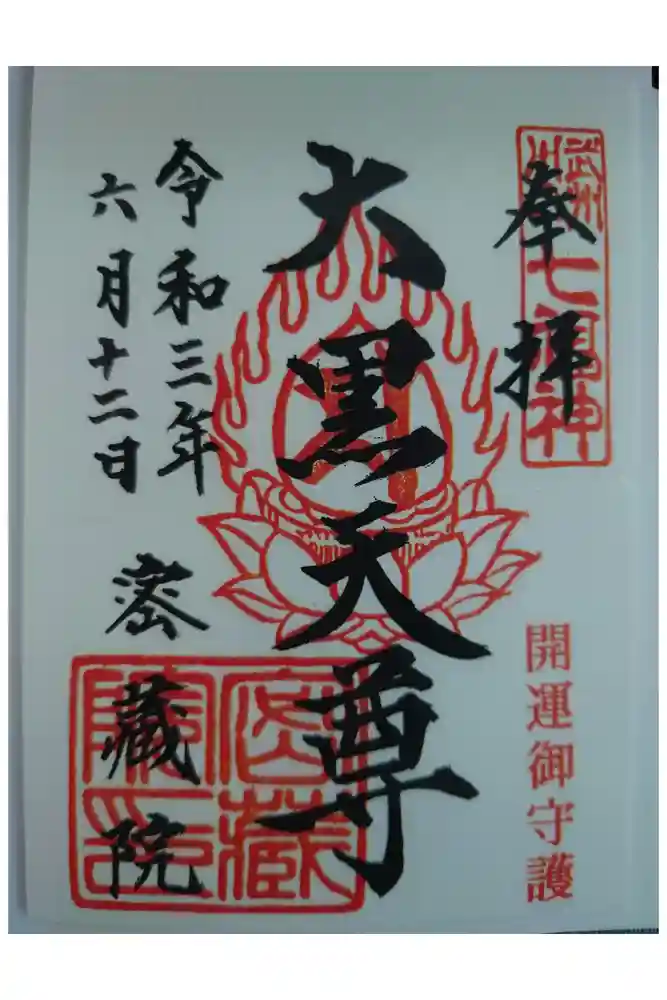 奉拝
武州
七福神
開運御守護
大黒天尊
令和三年
六月十二日
密蔵院
密蔵
院印